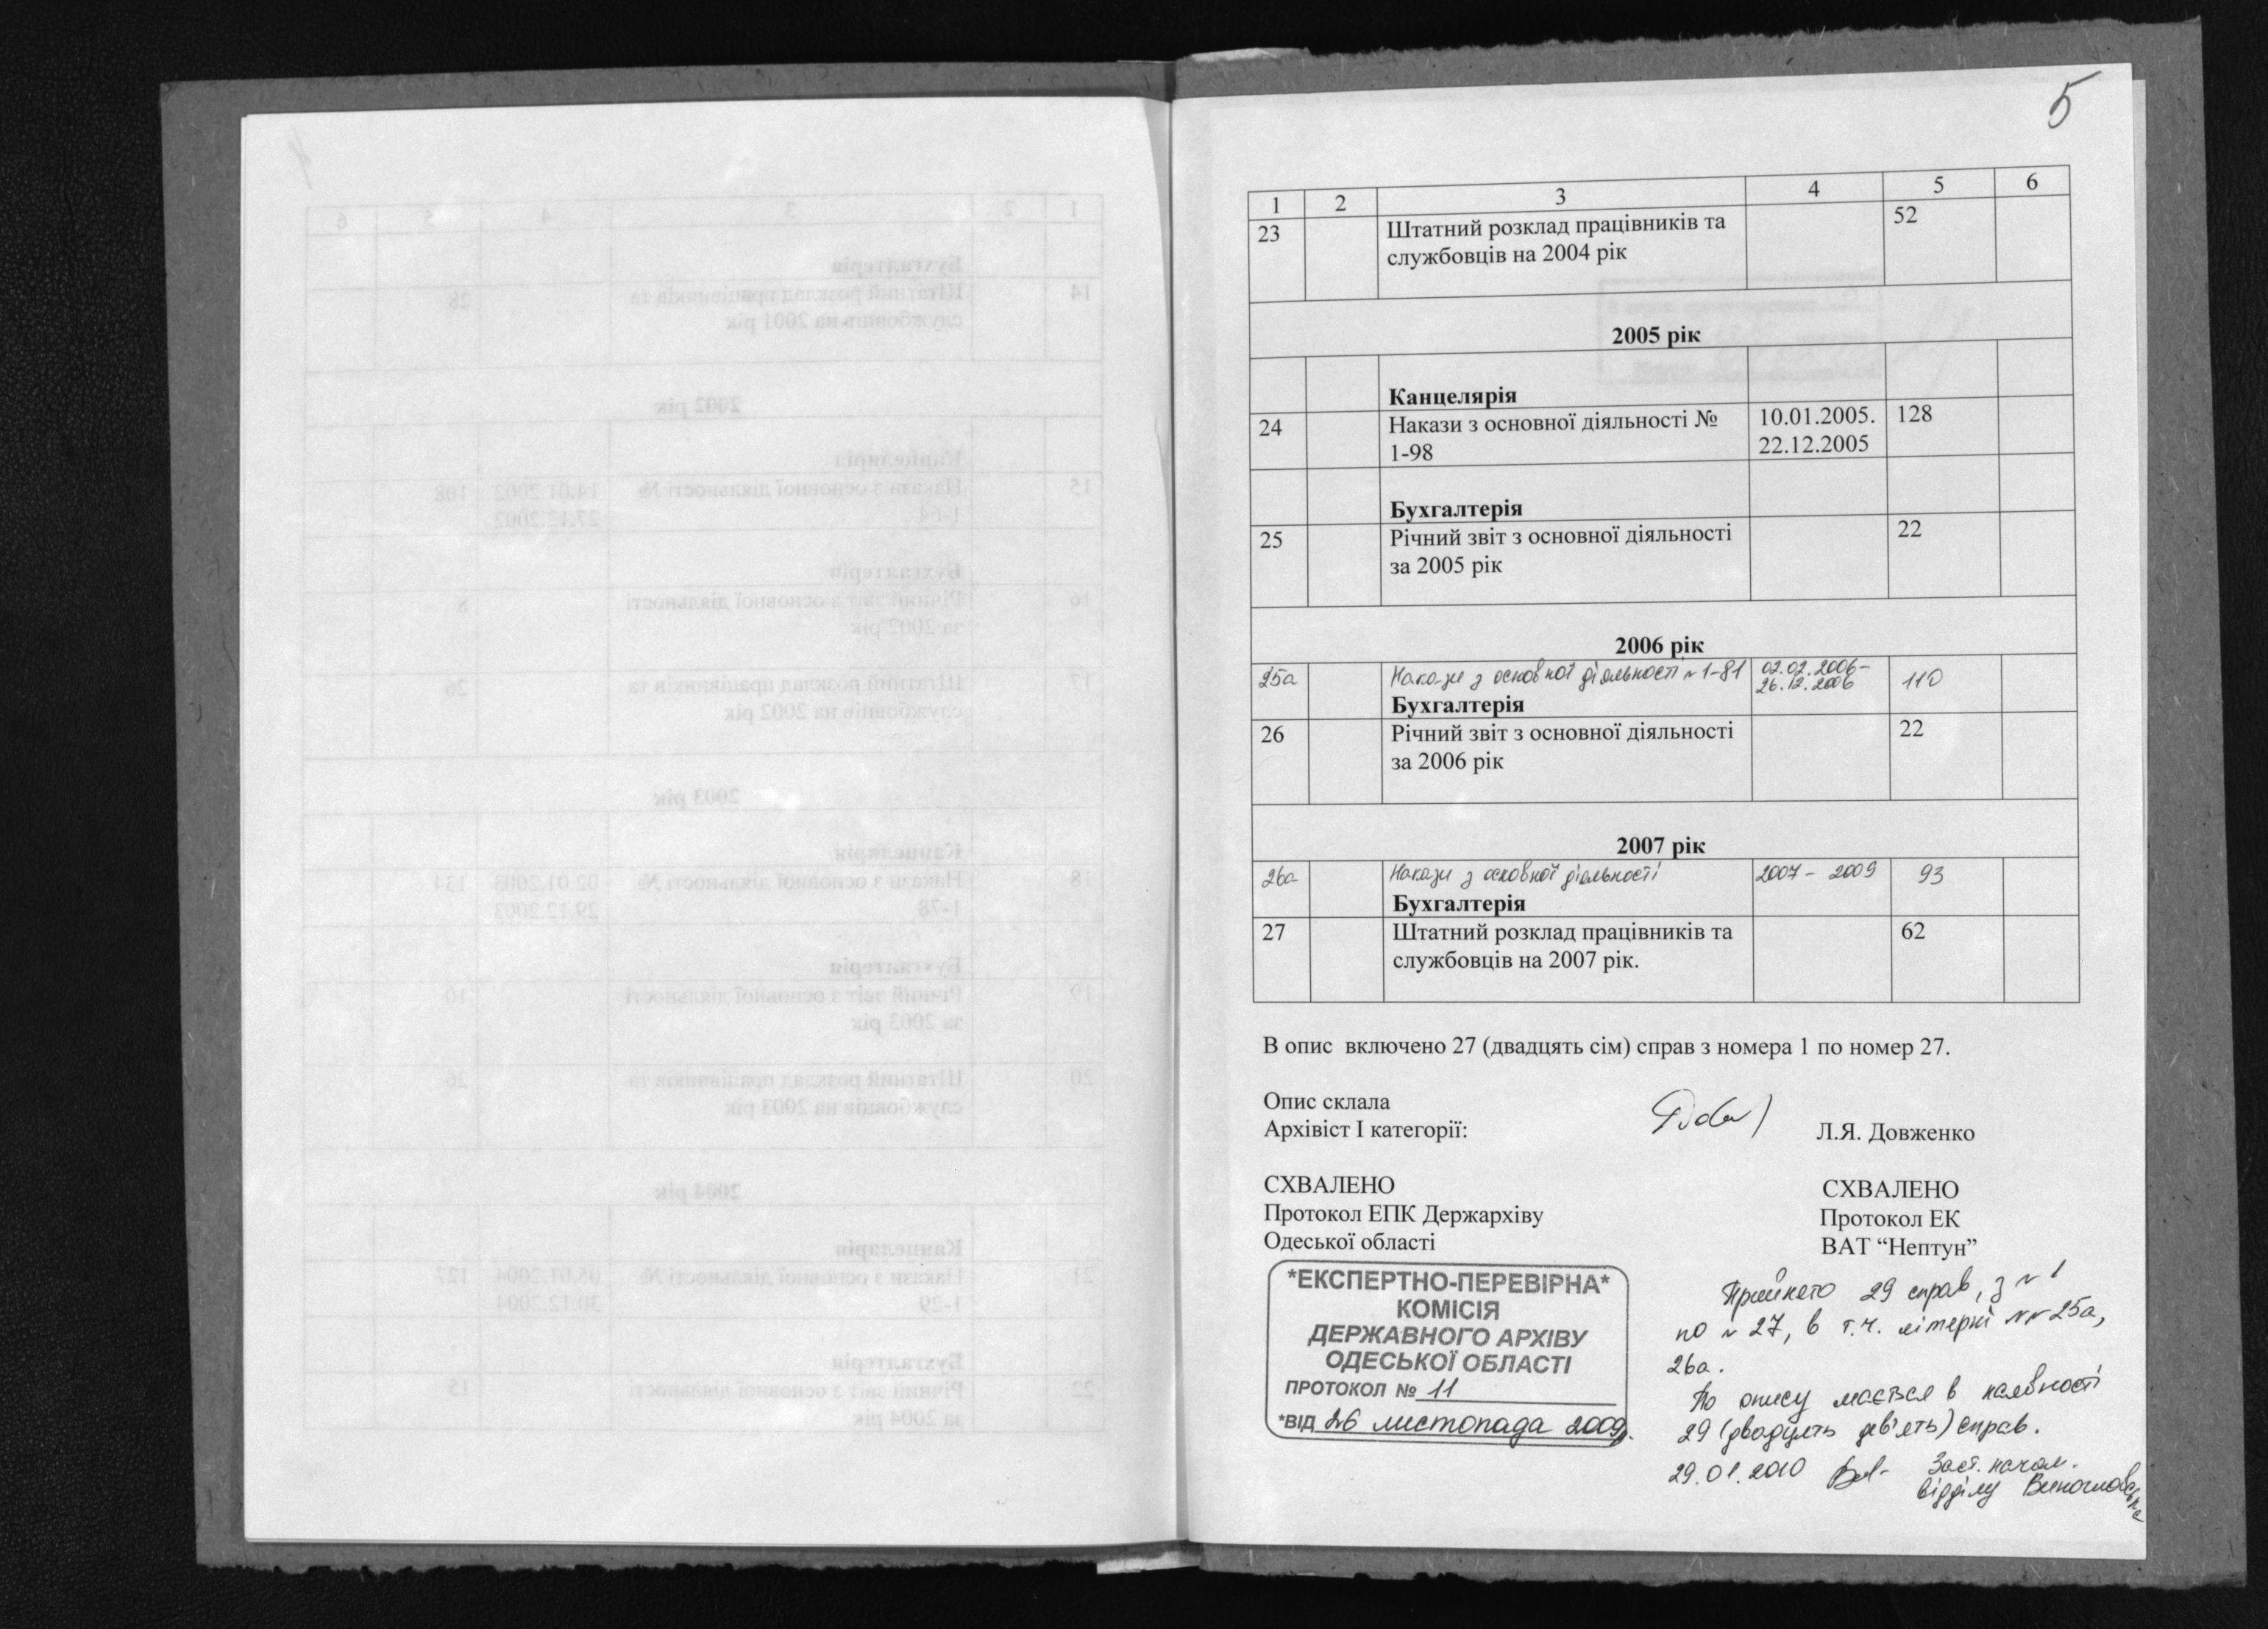 5
1 2 3 4 5 6
23 Штатний розклад працівників та 52
службовців на 2004 рік
2005 рік
Канцелярія
24 Накази з основної діяльності № 10.01.2005. 128
1-98 22.12.2005
Бухгалтерія
25 Річний звіт з основної діяльності 22
за 2005 рік
2006 рік
25а Накази з основної діяльності № 1-81 02.02.2006- 110
26.12.2006
Бухгалтерія
26 Річний звіт з основної діяльності 22
за 2006 рік
2007 рік
26а Накази з основної діяльності 2007 - 2009 93
Бухгалтерія
27 Штатний розклад працівників та 62
службовців на 2007 рік.
В опис включено 27 (двадцять сім) справ з номера 1 по номер 27.
Опис склала
Архівіст І категорії: Л.Я. Довженко
СХВАЛЕНО
Протокол ЕПК Держархіву
Одеської області
СХВАЛЕНО
Протокол ЕК
ВАТ “Нептун”
*ЕКСПЕРТНО-ПЕРЕВІРНА*
КОМІСІЯ
ДЕРЖАВНОГО АРХІВУ
ОДЕСЬКОЇ ОБЛАСТІ
ПРОТОКОЛ № 11
*ВІД 26 листопада 2009р.
Прийнято 29 справ, з № 1
по № 27, в т.ч. літерні №№ 25а,
26а.
По опису мається в наявності
29 (двадцять дев'ять) справ.
29.01.2010 Заст. начал.
відділу